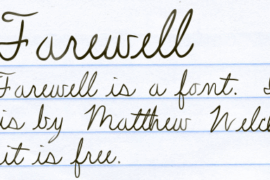 Farewell
Farewell is a font.
is by Matthew Welch
it is free.